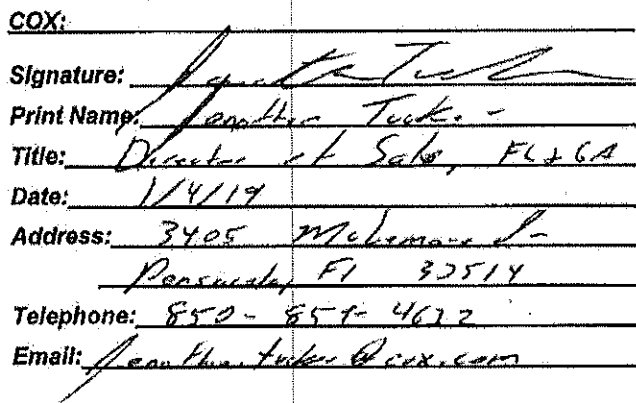 COX:
Signature: Jonathan Tucker
Print Name: Jonathan Tucker
Title: Director of Sales, FL & GA
Date: 1/4/19
Address: 3405 McLemore Dr
Pensacola, Fl 32514
Telephone: 850-857-4622
Email: Jonathan.tucker@cox.com